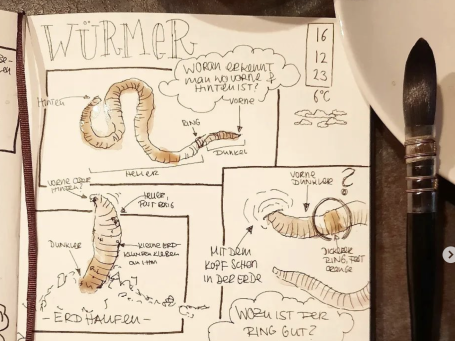 WÜRMER
16
12
23
6°C
WORAN ERKENNT
MAN WO VORNE &
HINTEN IST?
HINTEN
VORNE
RING
DUNKEL
HELLER
VORNE ODER
HINTEN?
HELLER,
FAST ROSA
DUNKLER
KLEINE ERD-
KLEBEN
AN IHM
-ERDHAUFEN-
VORNE
DUNKLER
?
MIT DEM
KOPF SCHON
IN DER ERDE
DICKERER
RING, FAST
ORANGE
WOZU IST DER
RING GUT?